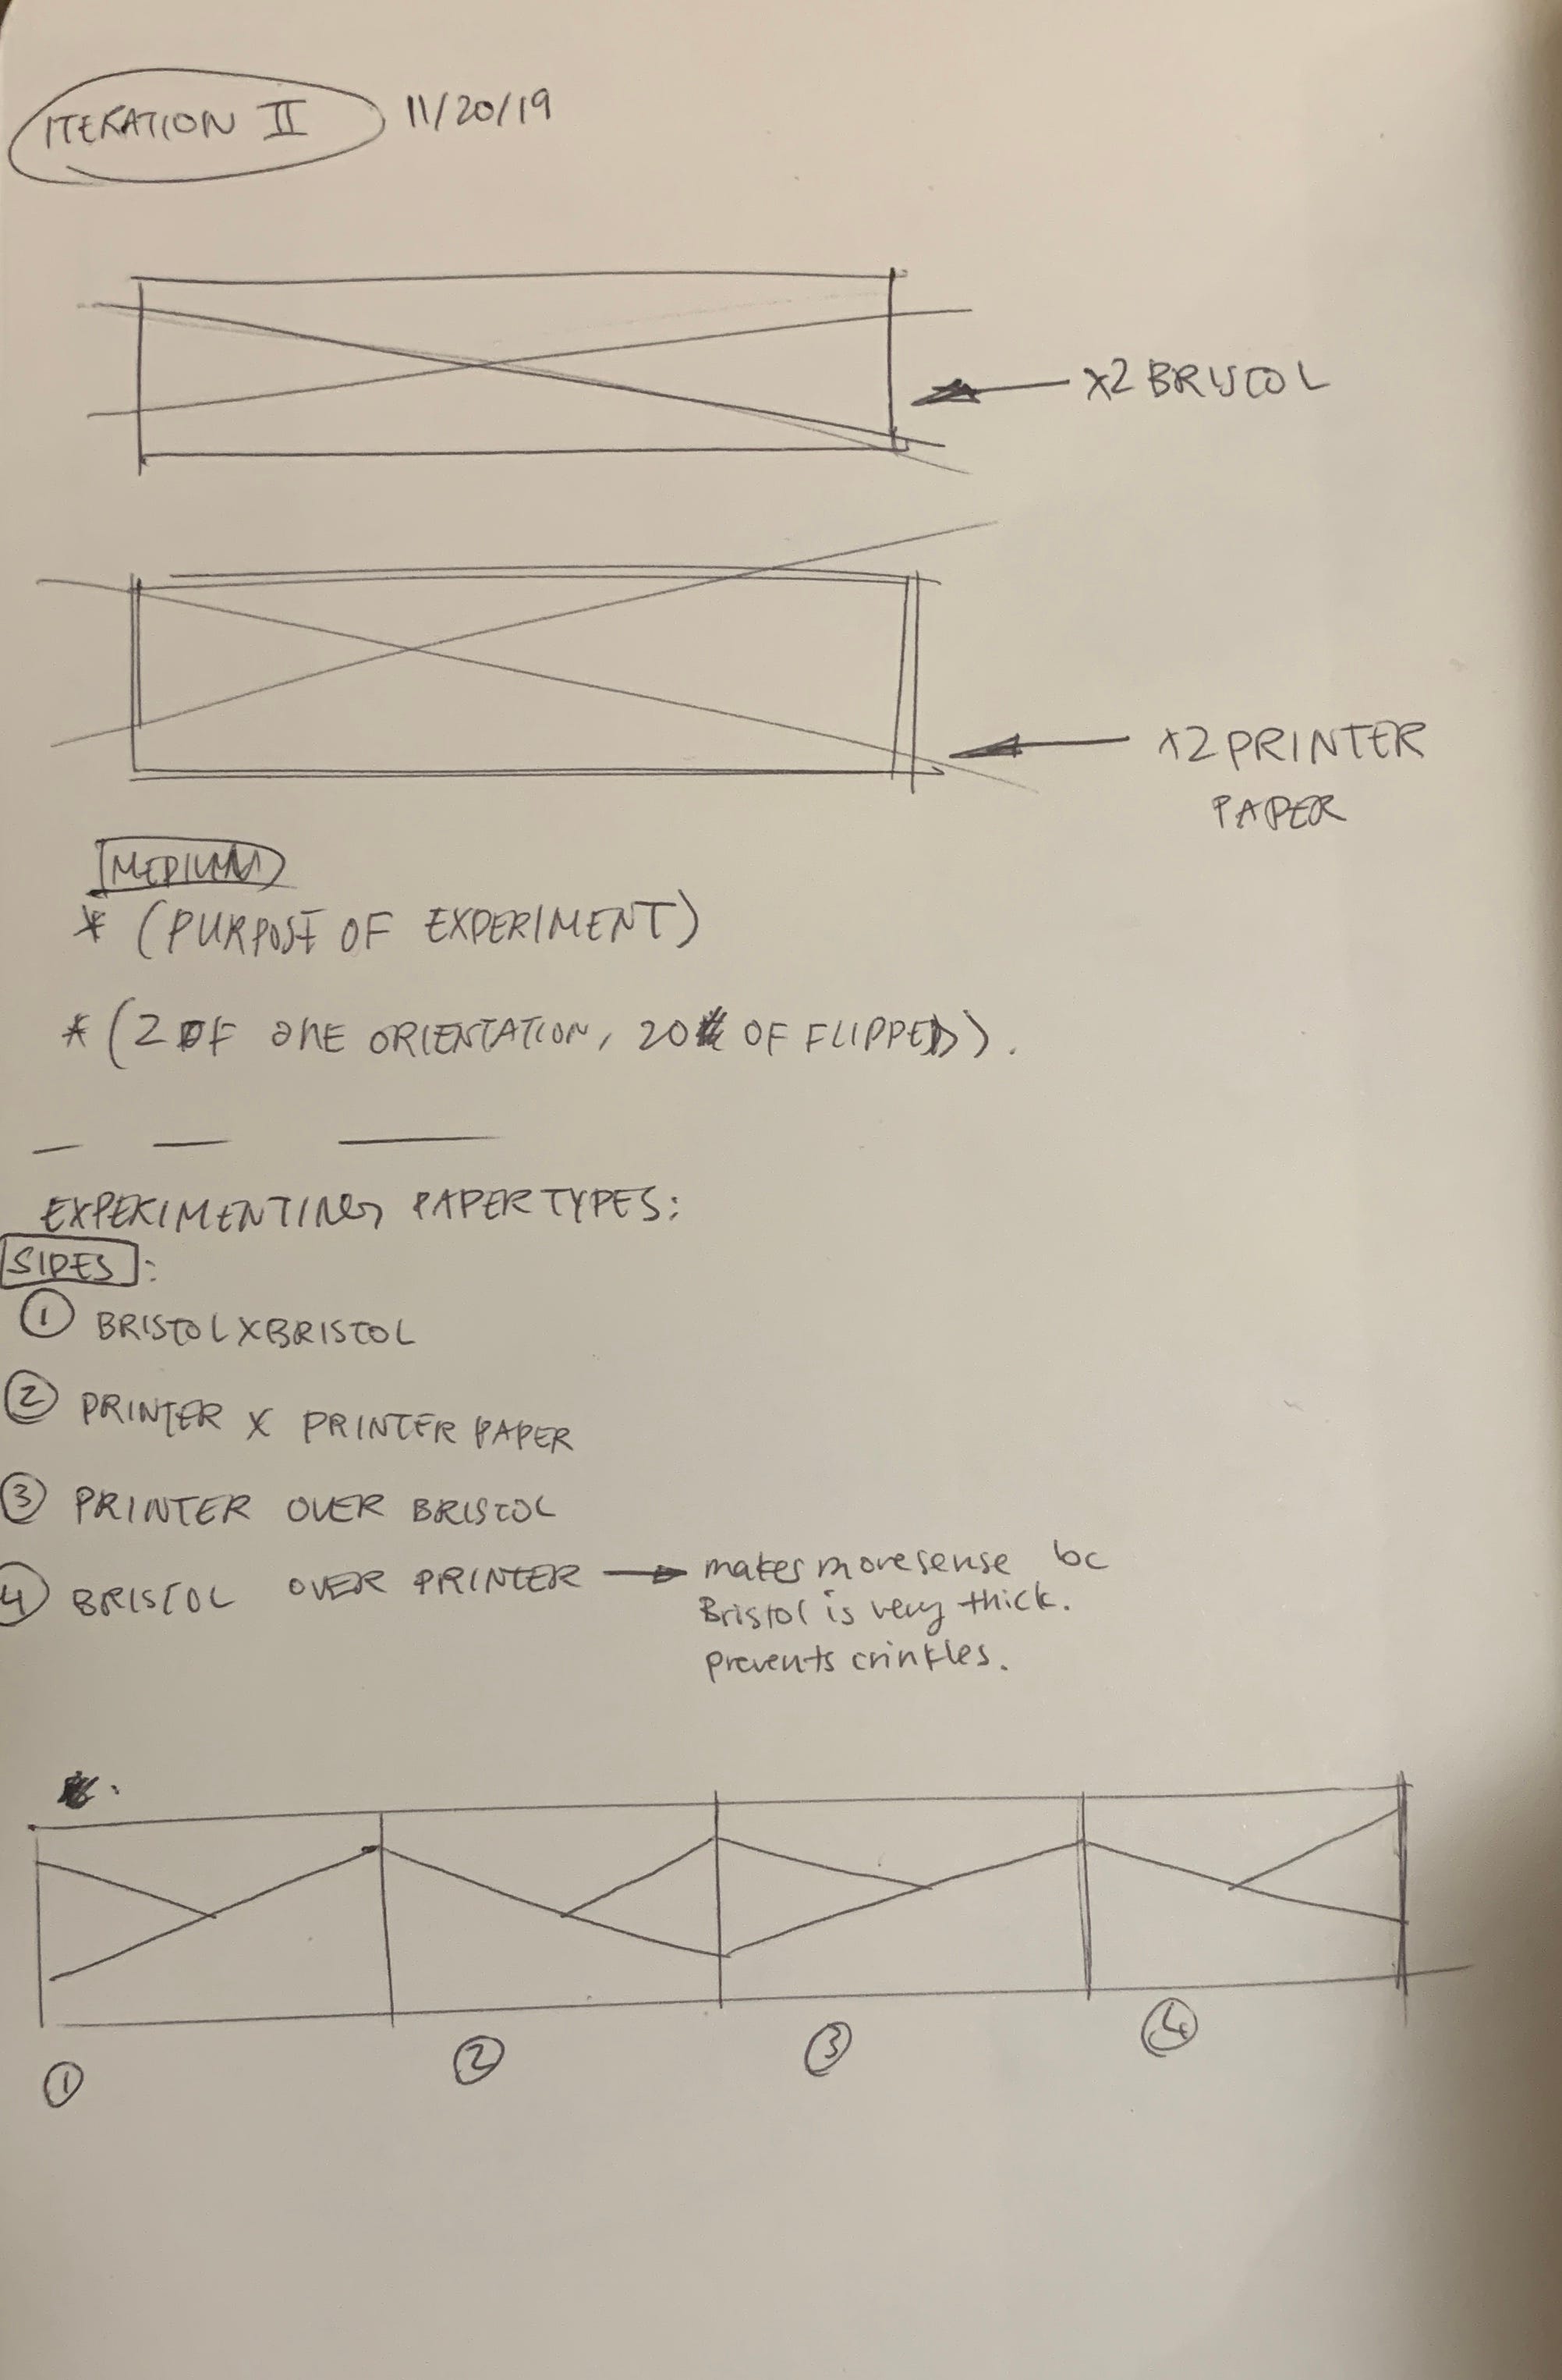 ITERATION II 11/20/19
x2 BRISTOL
x2 PRINTER
PAPER
MEDIUM
* (PURPOSE OF EXPERIMENT)
* (2 OF ONE ORIENTATION, 2 OF FLIPPED).
EXPERIMENTING PAPER TYPES:
SIDES:
① BRISTOL X BRISTOL
② PRINTER X PRINTER PAPER
③ PRINTER OVER BRISTOL
④ BRISTOL OVER PRINTER → makes more sense bc
Bristol is very thick.
prevents crinkles.
① ② ③ ④